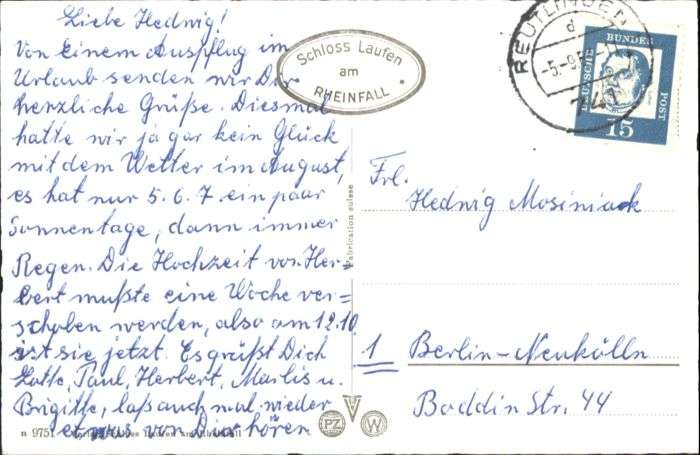 Liebe Hedwig!
Von einem Ausflug im
Urlaub senden wir Dir
herzliche Grüße. Diesmal
hatte wir ja gar kein Glück
mit dem Wetter im August,
es hat nur 5. 6. 7. ein paar
Sonnentage, dann immer
Regen. Die Hochzeit von Her=
bert mußte eine Woche ver=
schoben werden, also am 12.10.
ist sie jetzt. Es grüßt Dich
Lotte, Paul, Herbert, Marlis u.
Brigitte, laß auch mal wieder
etwas von Dir hören
n 9751
Schloss Laufen
am
RHEINFALL
REUTLINGEN
d
-5.-9.
DEUTSCHE
BUNDES
POST
15
Fabrication suisse
Frl.
Hedwig Mosiniack
1 Berlin-Neukölln
Boddin Str. 44
PZ
W